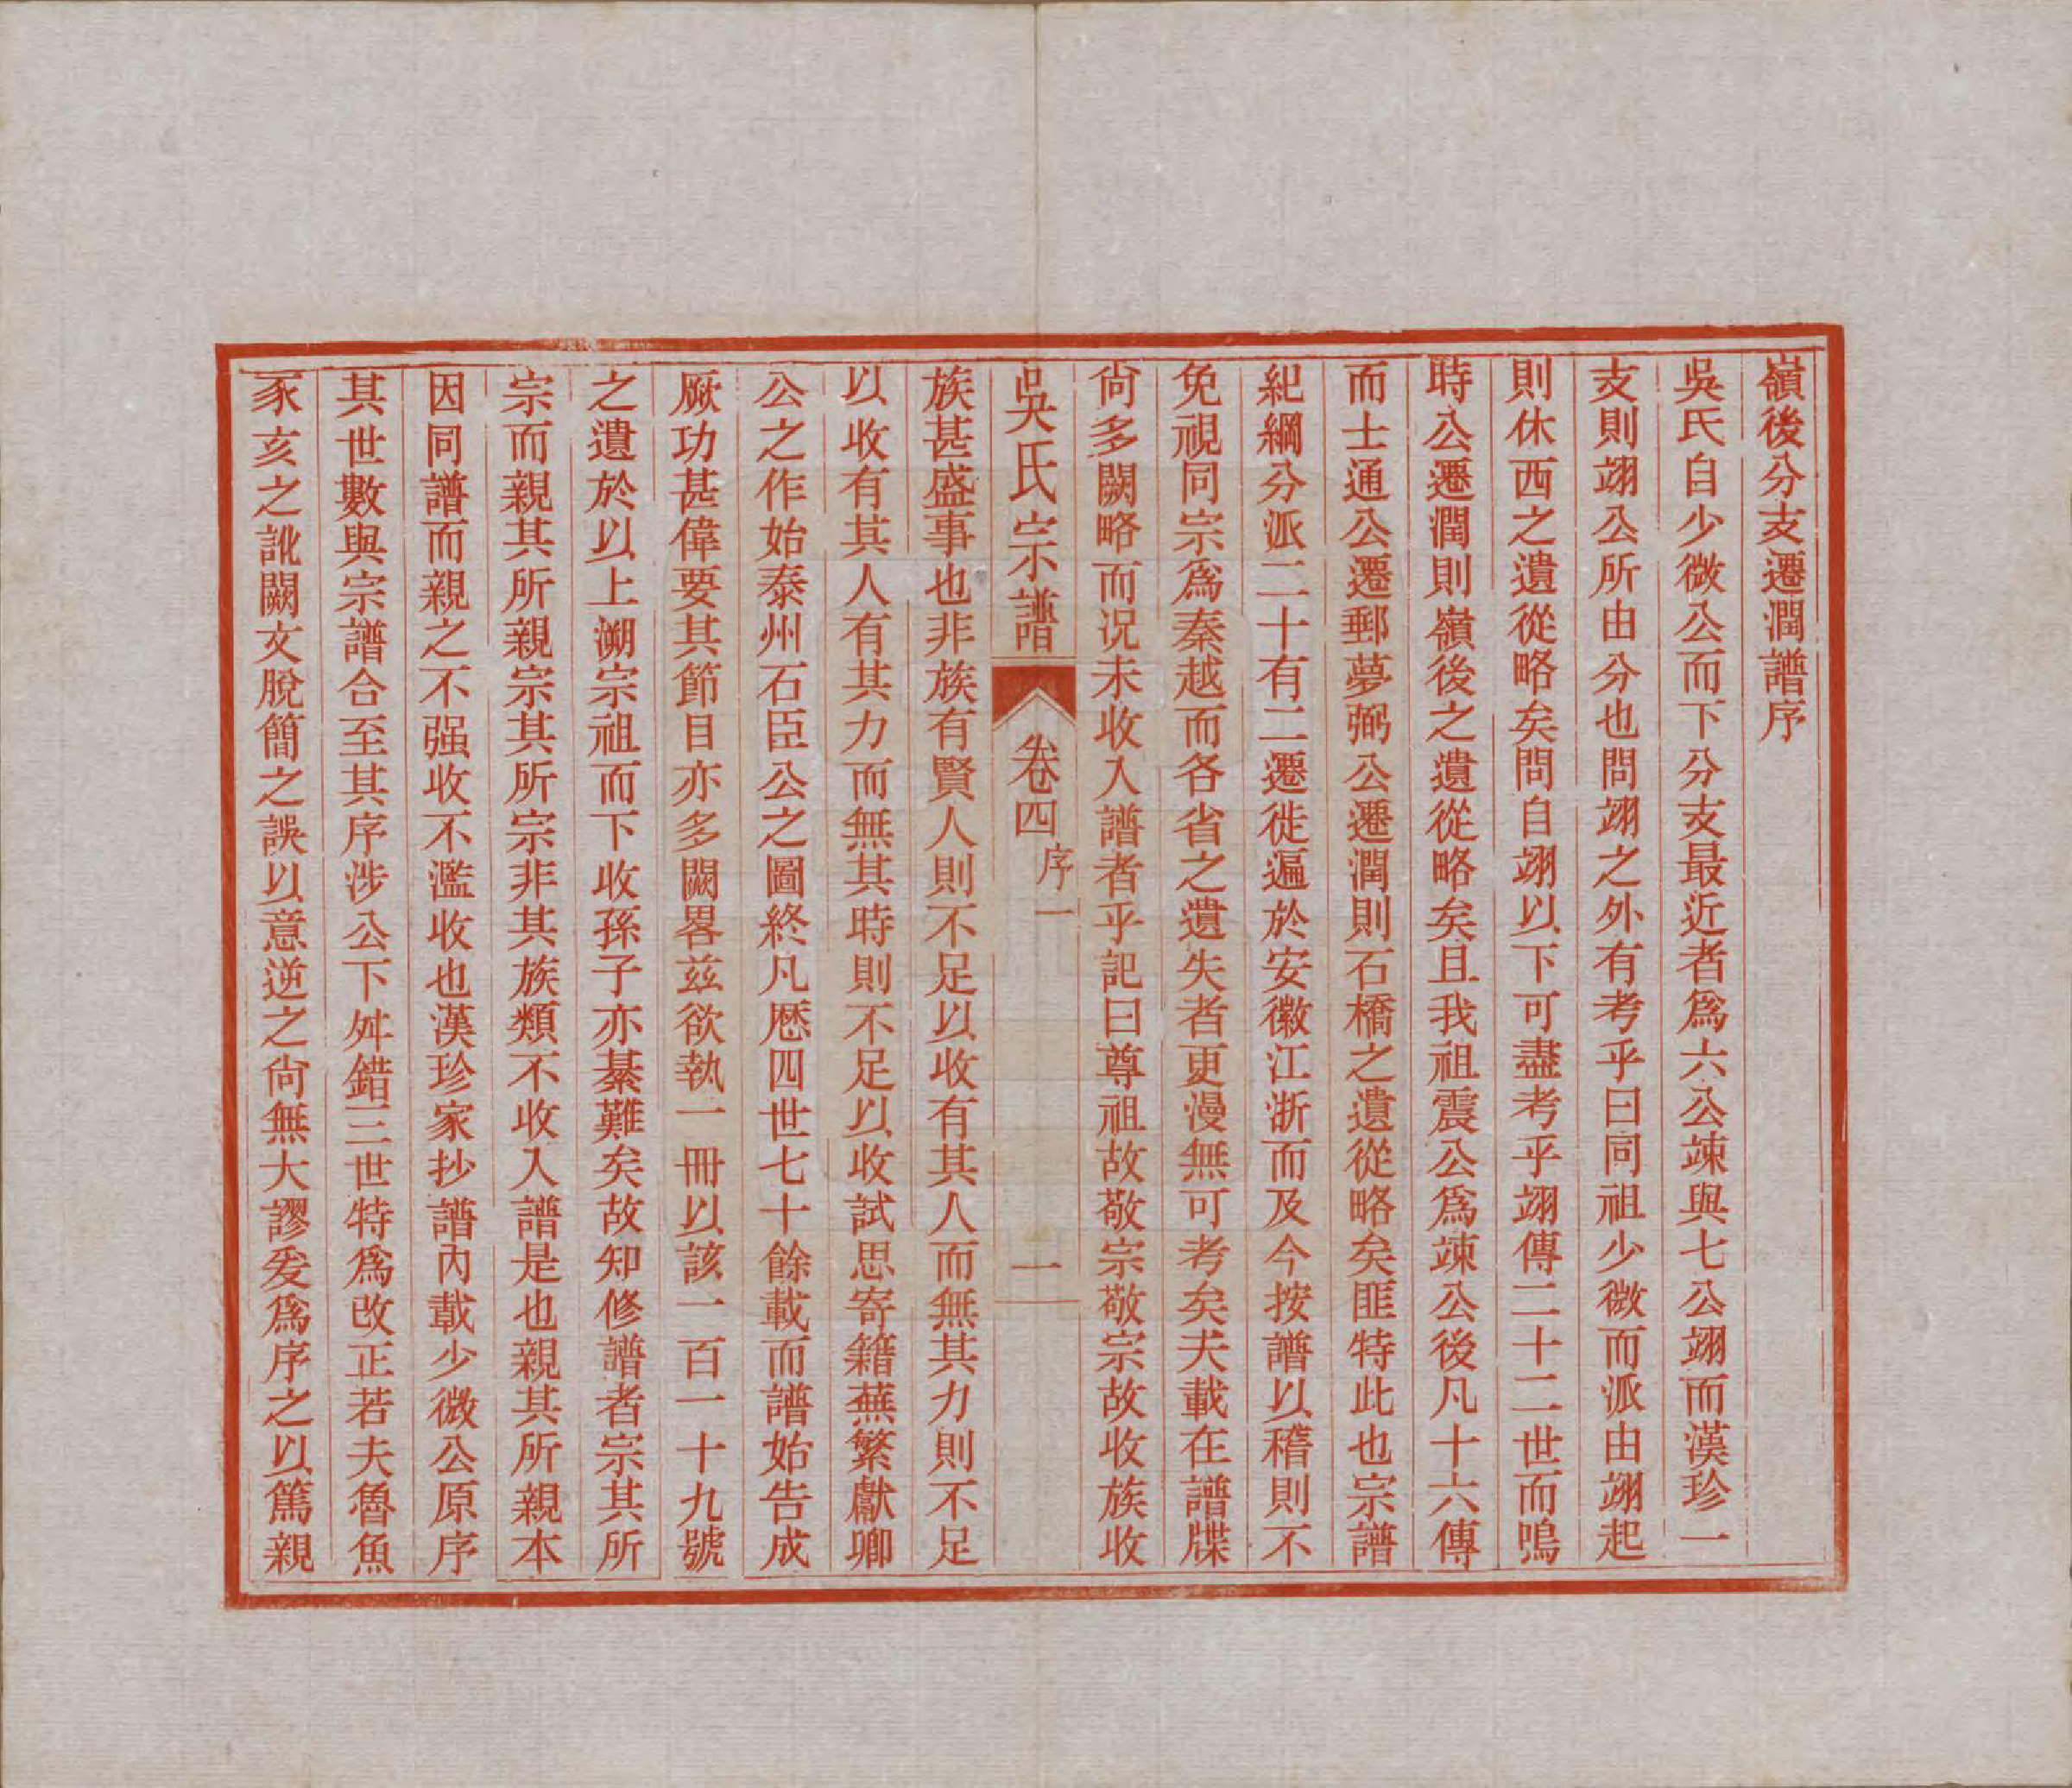 嶺後分支遷潤譜序
吳氏自少微公而下分支最近者爲六公竦與七公翊而漢珍一
支則翊公所由分也問翊之外有考乎曰同祖少微而派由翊起
則休西之遺從略矣問自翊以下可盡考乎翊傳二十二世而鳴
時公遷潤則嶺後之遺從略矣且我祖震公爲竦公後凡十六傳
而士通公遷郵夢弼公遷潤則石橋之遺從略矣匪特此也宗譜
紀綱分派二十有二遷徙遍於安徽江浙而及今按譜以稽則不
免視同宗爲秦越而各省之遺失者更漫無可考矣夫載在譜牒
尙多闕略而况未收入譜者乎記曰尊祖故敬宗敬宗故收族收
吳氏宗譜 卷四 序一 一
族甚盛事也非族有賢人則不足以收有其人而無其力則不足
以收有其人有其力而無其時則不足以收試思寄籍蕪繁獻卿
公之作始泰州石臣公之圖終凡歷四世七十餘載而譜始告成
厥功甚偉要其節目亦多闕畧兹欲執一冊以該一百一十九號
之遺於以上溯宗祖而下收孫子亦綦難矣故知修譜者宗其所
宗而親其所親宗其所宗非其族類不收入譜是也親其所親本
因同譜而親之不强收不濫收也漢珍家抄譜內載少微公原序
其世數與宗譜合至其序涉公下舛錯三世特爲改正若夫魯魚
豕亥之訛闕文脫簡之誤以意逆之尙無大謬爰爲序之以篤親